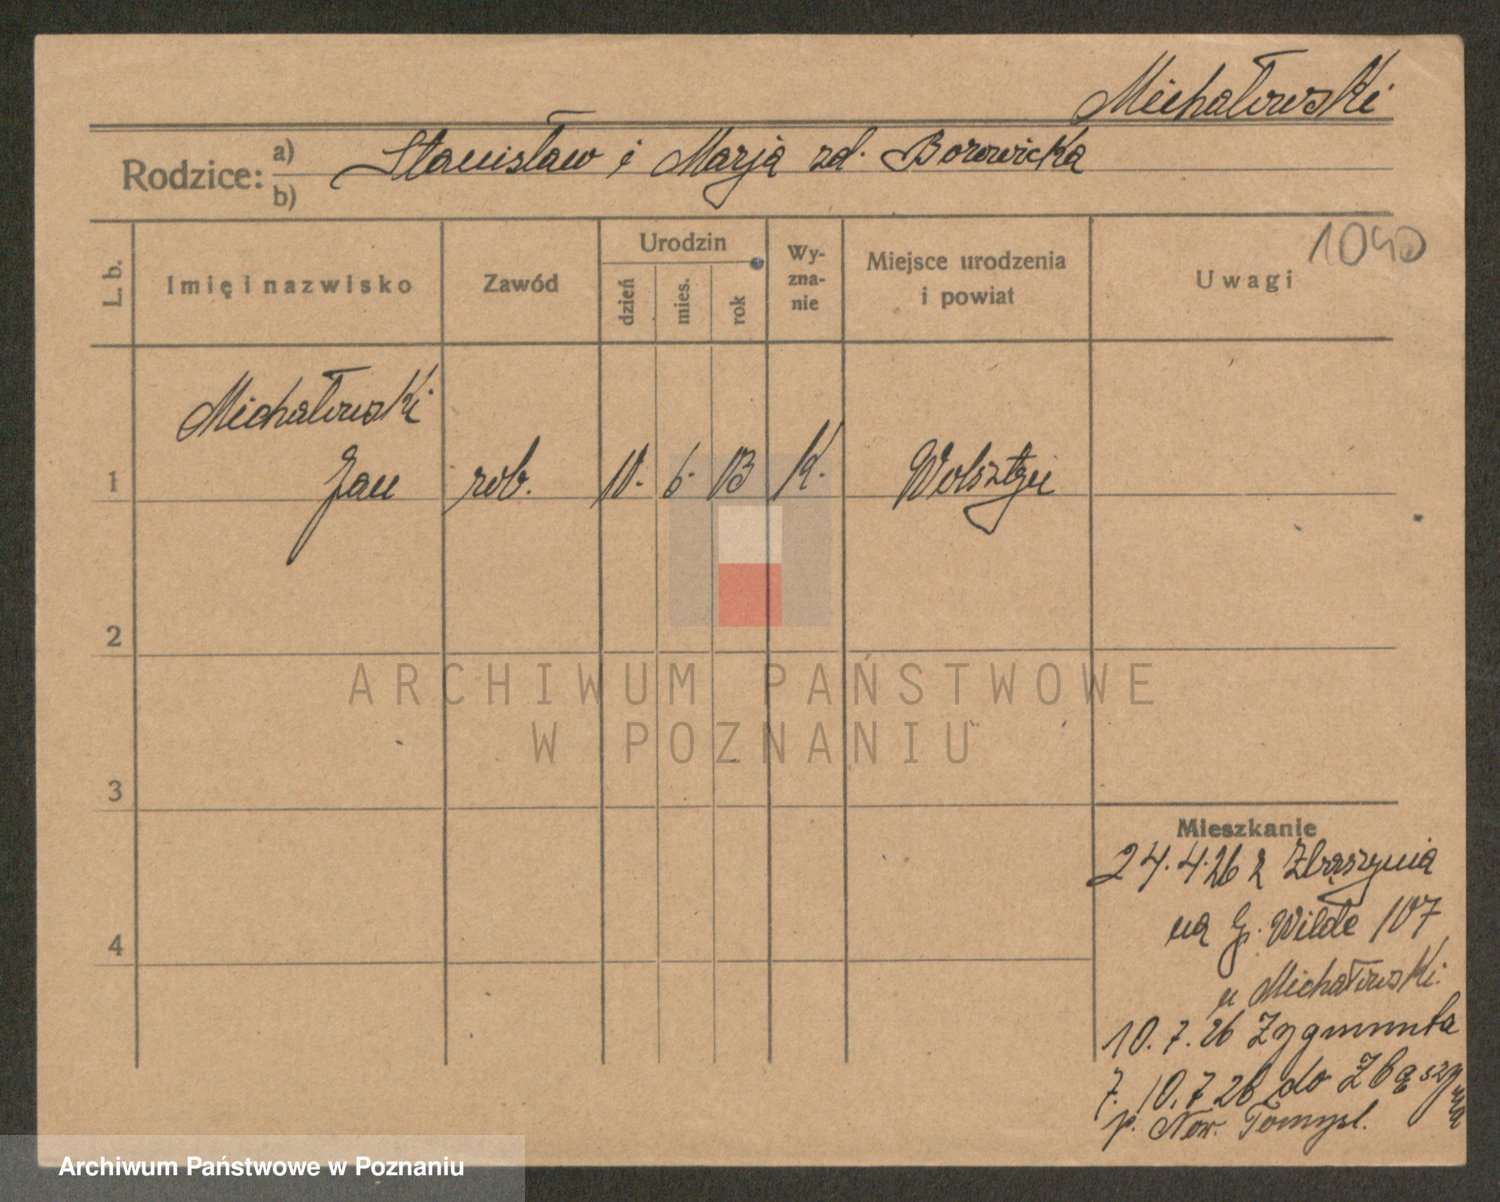 Michałowski
Rodzice: a) b) Stanisław i Marja zd. Borowicka
1040
L. b.
Imię i nazwisko
Zawód
Urodzin
dzień
mies.
rok
Wy-
zna-
nie
Miejsce urodzenia
i powiat
Uwagi
Michałowski
1 Jan rob. 10. 6. 13 K. Wolsztyn
2
ARCHIWUM PAŃSTWOWE
W POZNANIU
3
Mieszkanie
24.4.26 z Zbąszynia
4
na G. Wilde 107
u Michałowski.
10.7.26 Zygmunta
7. 10.7 26 do Zbąszynia
p. Now. Tomysl.
Archiwum Państwowe w Poznaniu